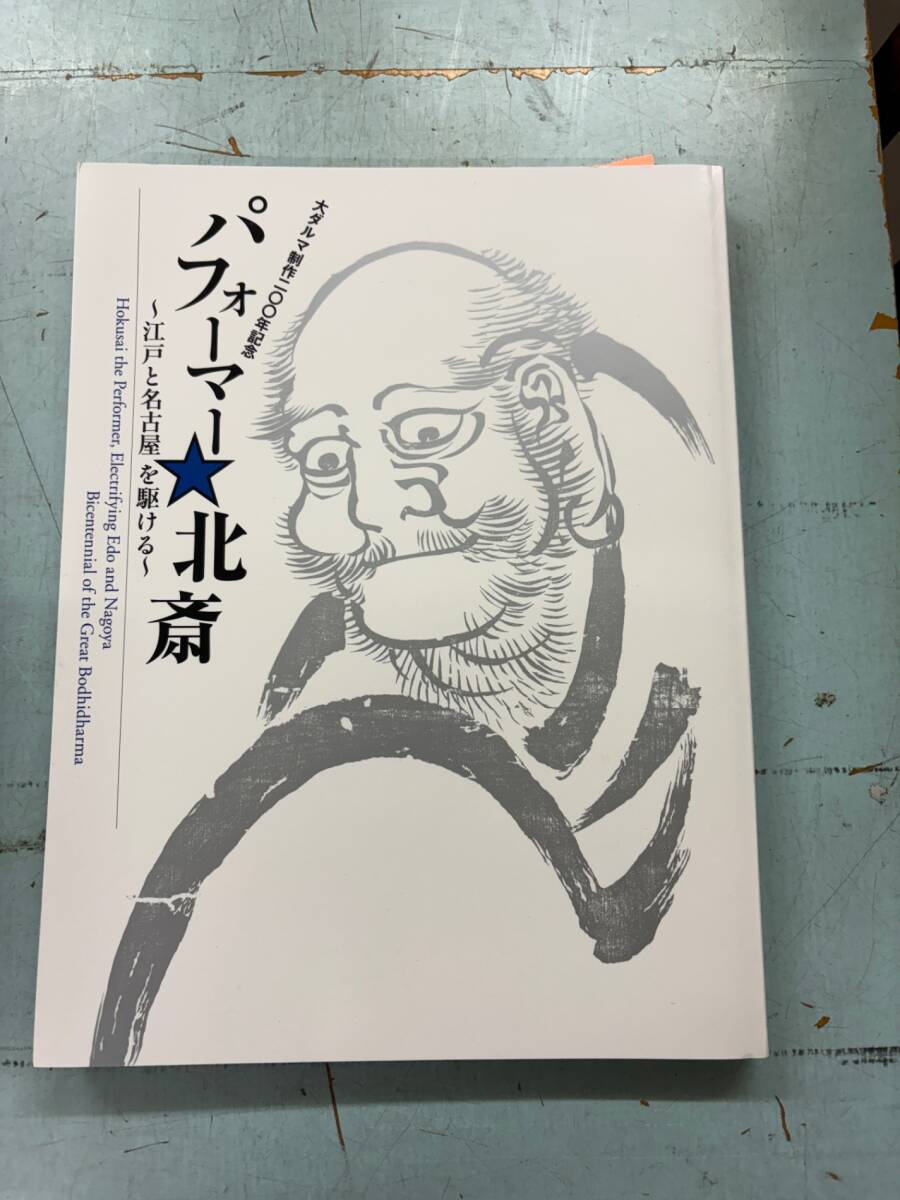 大ダルマ制作二〇〇年記念
パフォーマー★北斎
～江戸と名古屋を駆ける～
Hokusai the Performer, Electrifying Edo and Nagoya
Bicentennial of the Great Bodhidharma